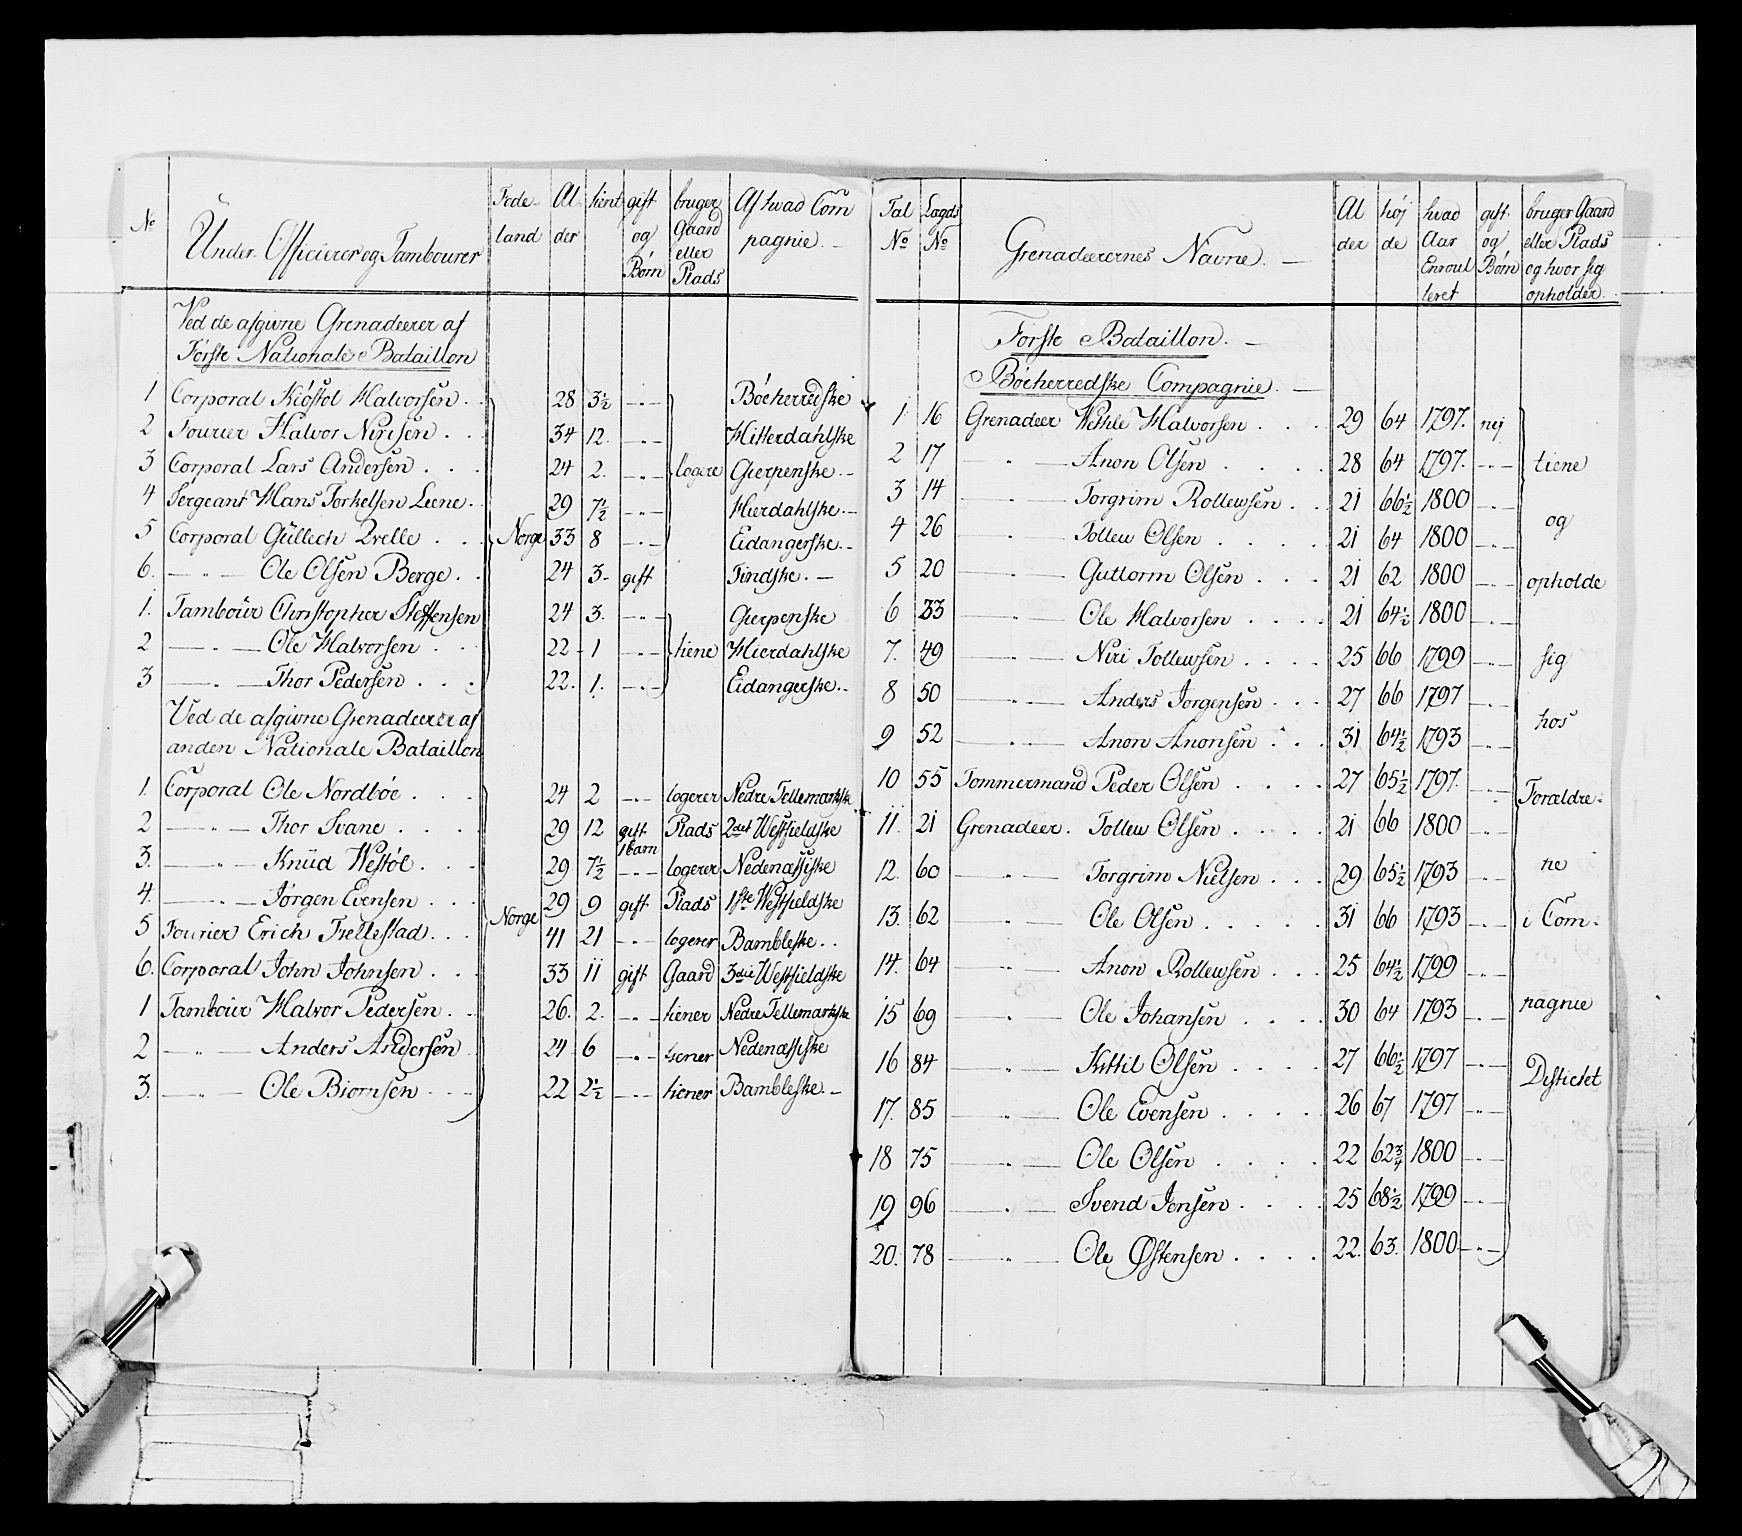 No
Under Officierer og Tambourer
Føde-
land
Al-
der
tient
gift
og
Børn
bruger
Gaard
eller
Plads
Af hvad Com
pagnie.
Ved de afgivne Grenadeerer af
Første Nationale Bataillon
1 Corporal Kiöstol Halvorsen . . 28 3½ -"- Böeherredske
2 Fourier Halvor Nirisen . . . 34 12. -"- Hitterdahlske
3 Corporal Lars Andersen . . . 24 2. -"- logere Gierpenske.
4 Sergeant Hans Torkelsen Leene . 29 7½ -"- Hierdahlske.
5 Corporal Güllech Qvelle . . . Norge 33 8 -"- Eidangerske.
6. -"- Ole Olsen Berge . . 24 3- gift Tindske.
1. Tambour Christopher Steffensen 24 3. -"- Gierpenske
2 -"- Ole Halvorsen . . 22 1 -"- tiene Hierdahlske
3 -"- Thor Pedersen . . . 22. 1. -"- Eidangerske.
Ved de afgivne Grenadeerer af
anden Nationale Bataillon
1. Corporal Ole Nordböe . . . 24 2 -"- logerer Nedre Tellemarkske
2 -"- Thor Svane . . . . 29 12 gift 1 barn Plads 2det Westfieldske
3. -"- Knüd Westöl . . . 29 7½ -"- logerer Nedenæssiske
4. -"- Jørgen Evensen . . . 29 9 gift Plads 1ste Westfieldske
5 Fourier Erich Trellestad . . . Norge 41 21 -"- logerer Bambleske . .
6. Corporal John Johnsen . . . 33 11 gift Gaard 3die Westfieldske
1 Tambour Halvor Pedersen . . 26. 2. -"- tiener Nedre Tellemarkske
2 -"- Anders Andersen 24 6 -"- tiener Nedenæssiske
3. -"- Ole Biörnsen . . . 22 2½ -"- tiener Bambleske.
Tal
No
Lagds
No
Grenadeerernes Navne.
Al
der
høj
de
hvad
Aar
Enroul
leret
gift
og
Børn
bruger Gaard
eller Plads
og hvor sig
opholder.
Første Bataillon.
Böeherredske Compagnie.
1. 16 Grenadeer Wethle Halvorsen . . . 29 64 1797. nej
2 17 -"- Anon Olsen . . . . 28 64 1797. -"- tiene
3 14 -"- Torgrim Rollewsen . . 21 66½ 1800 -"-
4 26 -"- Tollew Olsen . . . . 21 64 1800 -"- og
5 20 -"- Guttorm Olsen . . . 21 62 1800 -"- opholde
6 33 -"- Ole Halvorsen . . . . 21 64½ 1800 -"-
7. 49 -"- Niri Tollewsen . . . . 25 66 1799 -"- sig
8 50 -"- Anders Jörgensen . . . 27 66 1797 -"-
9 52 -"- Anon Anonsen . . . 31 64½ 1793 -"- hos
10 55 Tømmermand Peder Olsen . . . . 27 65½ 1797. -"- Forældre-
11. 21 Grenadeer. Tollew Olsen . . . . 21 66 1800 -"-
12. 60 -"- Torgrim Nielsen . . . 29 65½ 1793 -"- ne
13. 62 -"- Ole Olsen . . . . . 31 66 1793 -"- i Com-
14. 64 -"- Anon Rollewsen . . . 25 64½ 1799 -"-
15 69 -"- Ole Johansen . . . . 30 64 1793 -"- pagnie
16 84 -"- Kittil Olsen . . . . 27 66½ 1797 -"- Districtet
17. 85 -"- Ole Evensen . . . . . 26 67 1797 -"-
18 75 -"- Ole Olsen . . . . 22 62¾ 1800 -"-
19 96 -"- Svend Jonsen . . . . 25 68½ 1799 -"-
20. 78 -"- Ole Østensen . . . . 22. 63. 1800 -"-